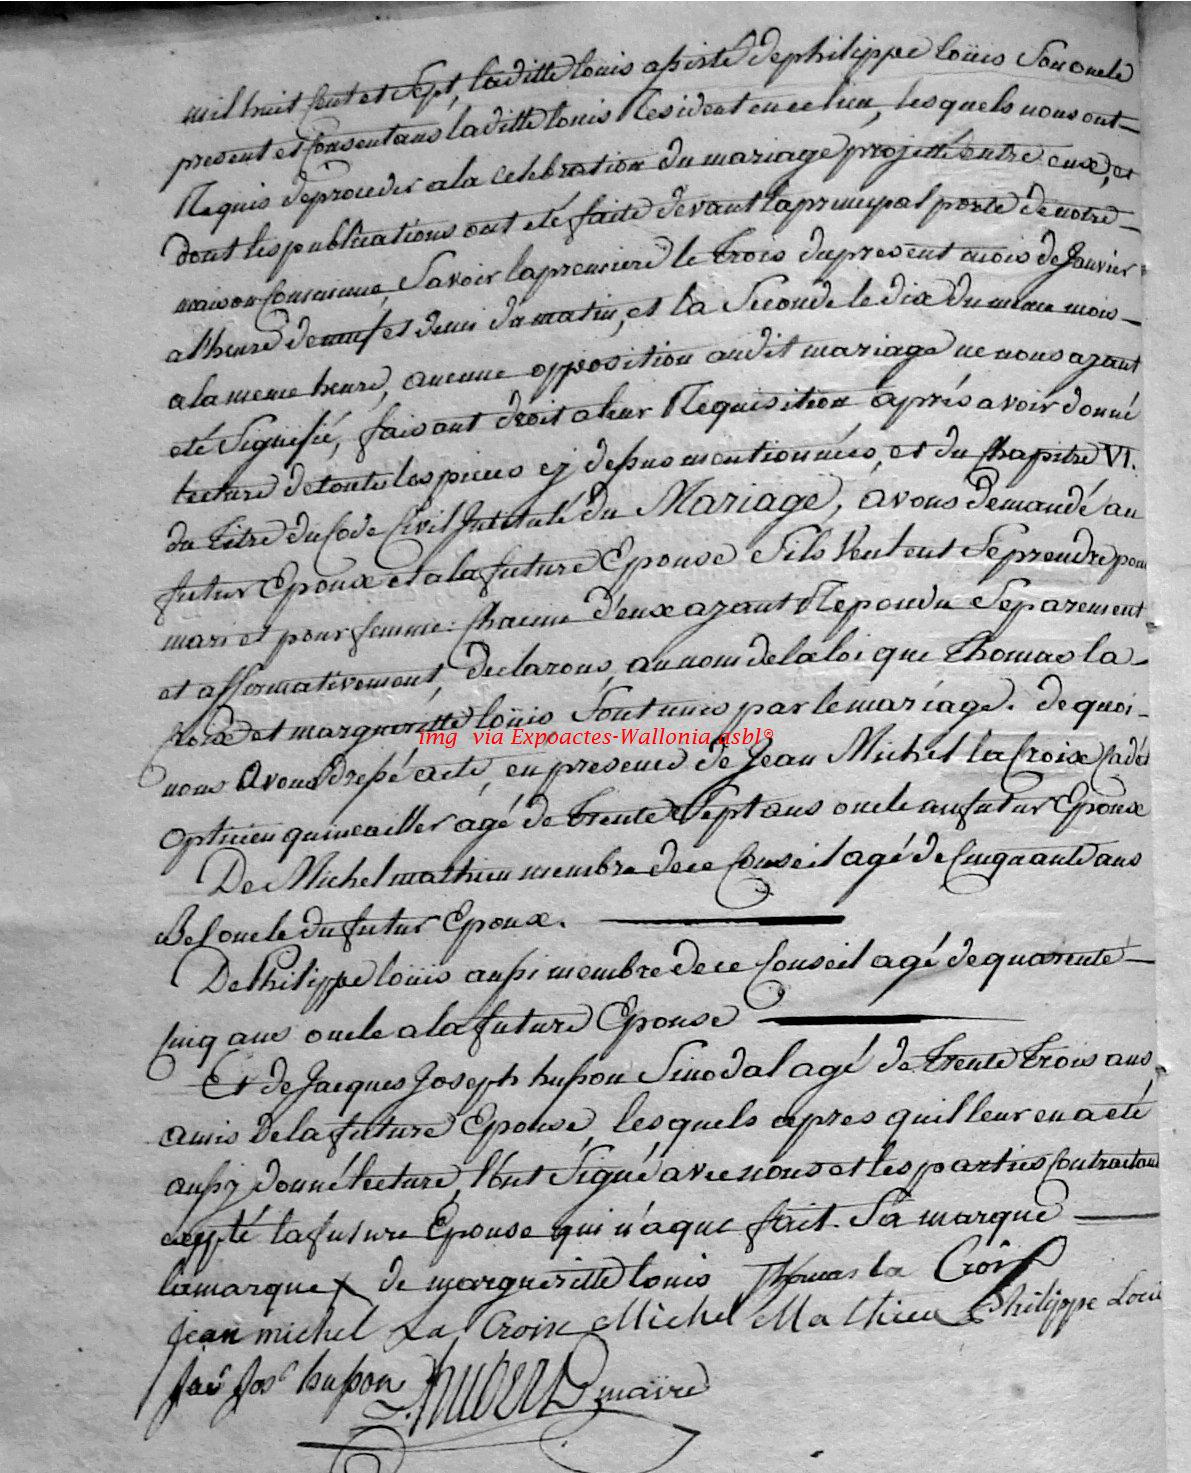 mil huit Cent et Sept, laditte louis assisté de philippe loüis Son oncle
present et Consentans laditte louis Residente en ce lieu, lesquels nous ont
Requis de proceder a la celebration du mariage projetté entre eux, et
dont les publications ont eté faite devant la principal porte de notre
maison Commune, Savoir la premiere le trois du present mois de Janvier
a l'heure de neuf et demi du matin, et la Seconde le dix du meme mois
a la meme heure, aucune opposition audit mariage ne nous ayant
eté Signifié, faisant droit a leur Requisition aprés avoir donné
lecture de toutes les pieces cy dessus mentionnées, et du Chapitre VI.
du titre du Code Civil Intitulé du Mariage, avons demandé au
futur Epoux et a la future Epouse S'ils Veulent Se prendre pour
mari et pour femme: Chacun d'eux ayant Repondu Separement
et affirmativement, declarons, au nom de la loi que thomas la
Croix et margueritte loüis Sont unis par le mariage. de quoi
nous Avons dressé acte, en presence de Jean Michel la Croix Cadét
opticien quincaillier agé de trente Sept ans oncle au futur Epoux
De Michel mathieu membre de ce Conseil agé de Cinquante ans
Bel oncle du futur Epoux.
De Philippe loüis aussi membre de ce Conseil agé de quarente
Cinq ans oncle a la future Epouse
Et de Jacques Joseph husson Sinodal agé de trente trois ans,
amis de la future Epouse, lesquels apres quil leur en a eté
aussy donné lecture, l'ont Signé avec nous et les parties Contractant
excepté la future Epouse qui n'a que fait Sa marque
la marque x de margueritte louis Thomas la Croix
jean michel La Croix Michel Mathieu Philippe Loui
Jac Jos husson Hubert maire
img via Expoactes-Wallonia,asbl®